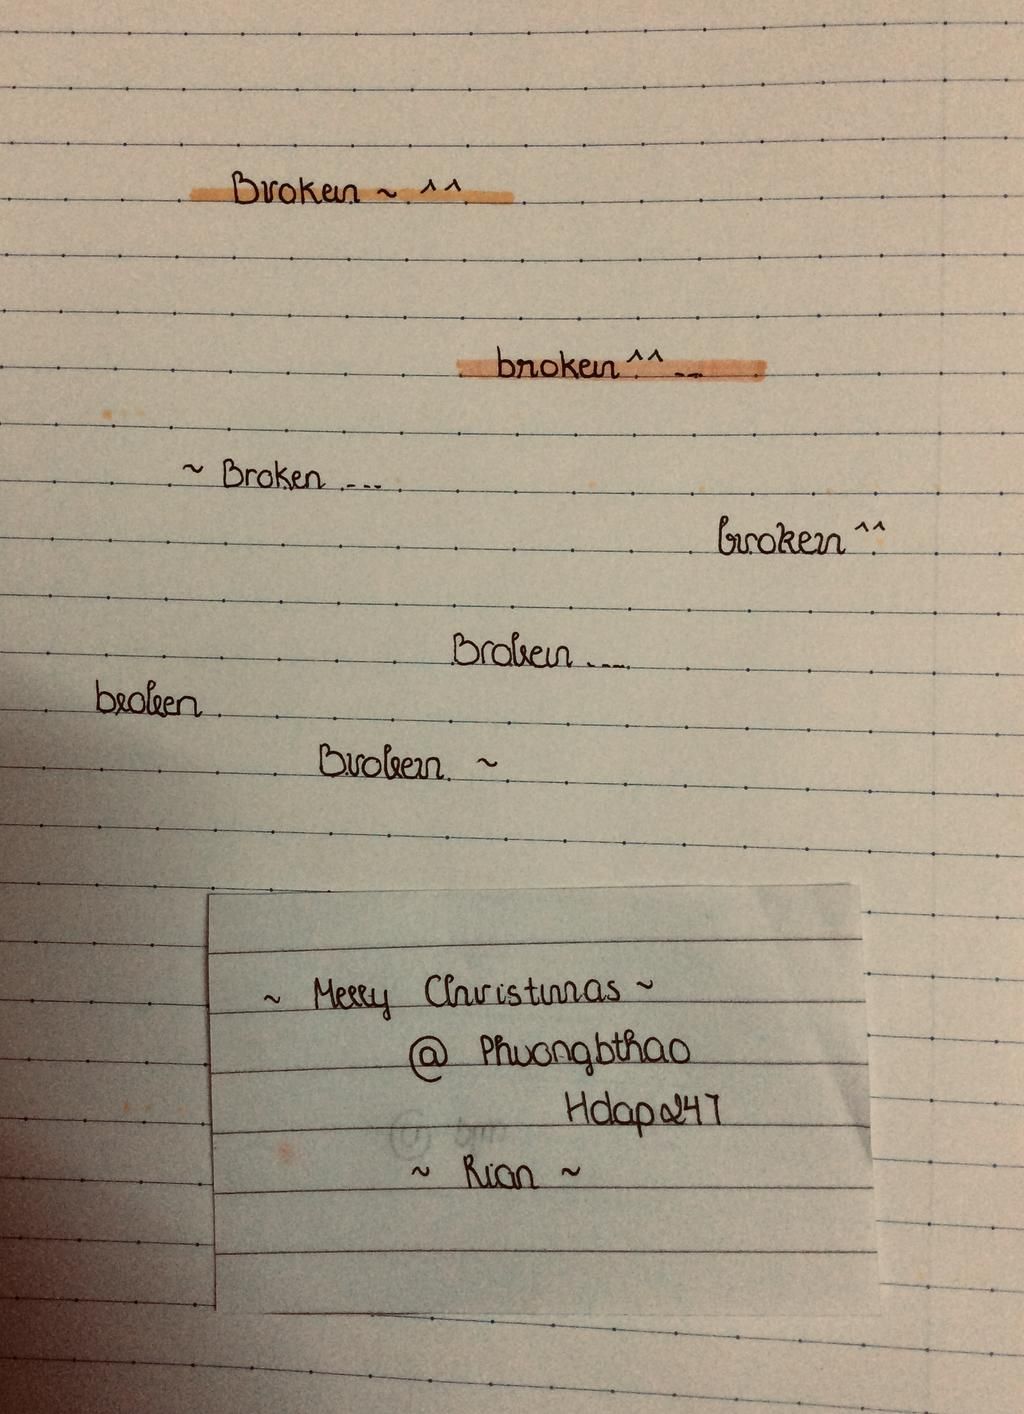 Broken ~ ^^
broken ^^ ...
~ Broken ...
broken ^^
Broken ....
broken
Broken ~
~ Merry Christmas ~
@ Phuongbthao
Hdap247
~ Rian ~